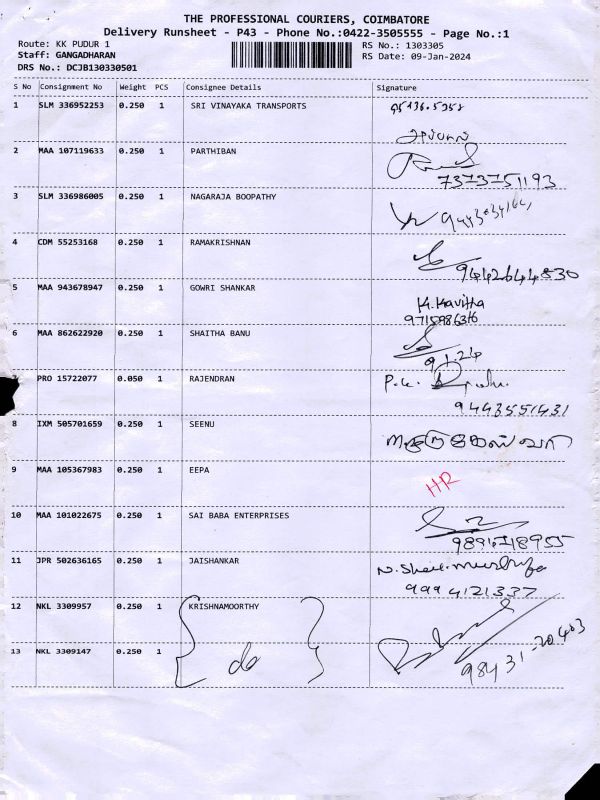 THE PROFESSIONAL COURIERS, COIMBATORE
Delivery Runsheet - P43 - Phone No.:0422-3505555 - Page No.:1
Route: KK PUDUR 1 RS No.: 1303305
Staff: GANGADHARAN RS Date: 09-Jan-2024
DRS No.: DCJB130330501
S No Consignment No Weight PCS Consignee Details Signature
1 SLM 336952253 0.250 1 SRI VINAYAKA TRANSPORTS
2 MAA 107119633 0.250 1 PARTHIBAN
7373751193
3 SLM 336986005 0.250 1 NAGARAJA BOOPATHY
4 CDM 55253168 0.250 1 RAMAKRISHNAN
9442644830
5 MAA 943678947 0.250 1 GOWRI SHANKAR
K. Kavitha
9715986316
6 MAA 862622920 0.250 1 SHAITHA BANU
9.1.24
7 PRO 15722077 0.050 1 RAJENDRAN
9443551431
8 IXM 505701659 0.250 1 SEENU
9 MAA 105367983 0.250 1 EEPA
HR
10 MAA 101022675 0.250 1 SAI BABA ENTERPRISES
11 JPR 502636165 0.250 1 JAISHANKAR
9994121337
12 NKL 3309957 0.250 1 KRISHNAMOORTHY
13 NKL 3309147 0.250 1 do
98431-20403